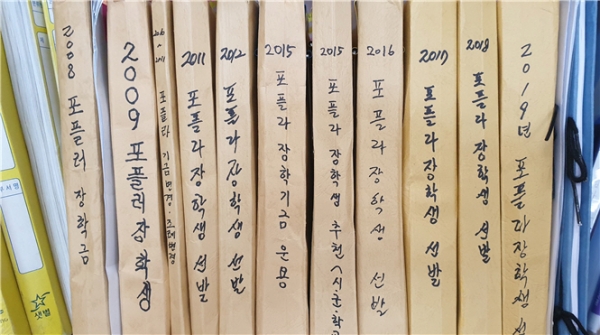 2008 포플러 장학금
2009 포플러장학생
포플라 기금변경·조례변경
2011 포플라장학생 선발
2012 포플라 장학생 선발
2015 포플라 장학기금 운용
2015 포플라 장학생 추천(시·군·학교
2016 포플라 장학생 선발
2017 포플라장학생 선발
2018 포플라 장학생 선발
2019년 포플라장학생 선
샛별